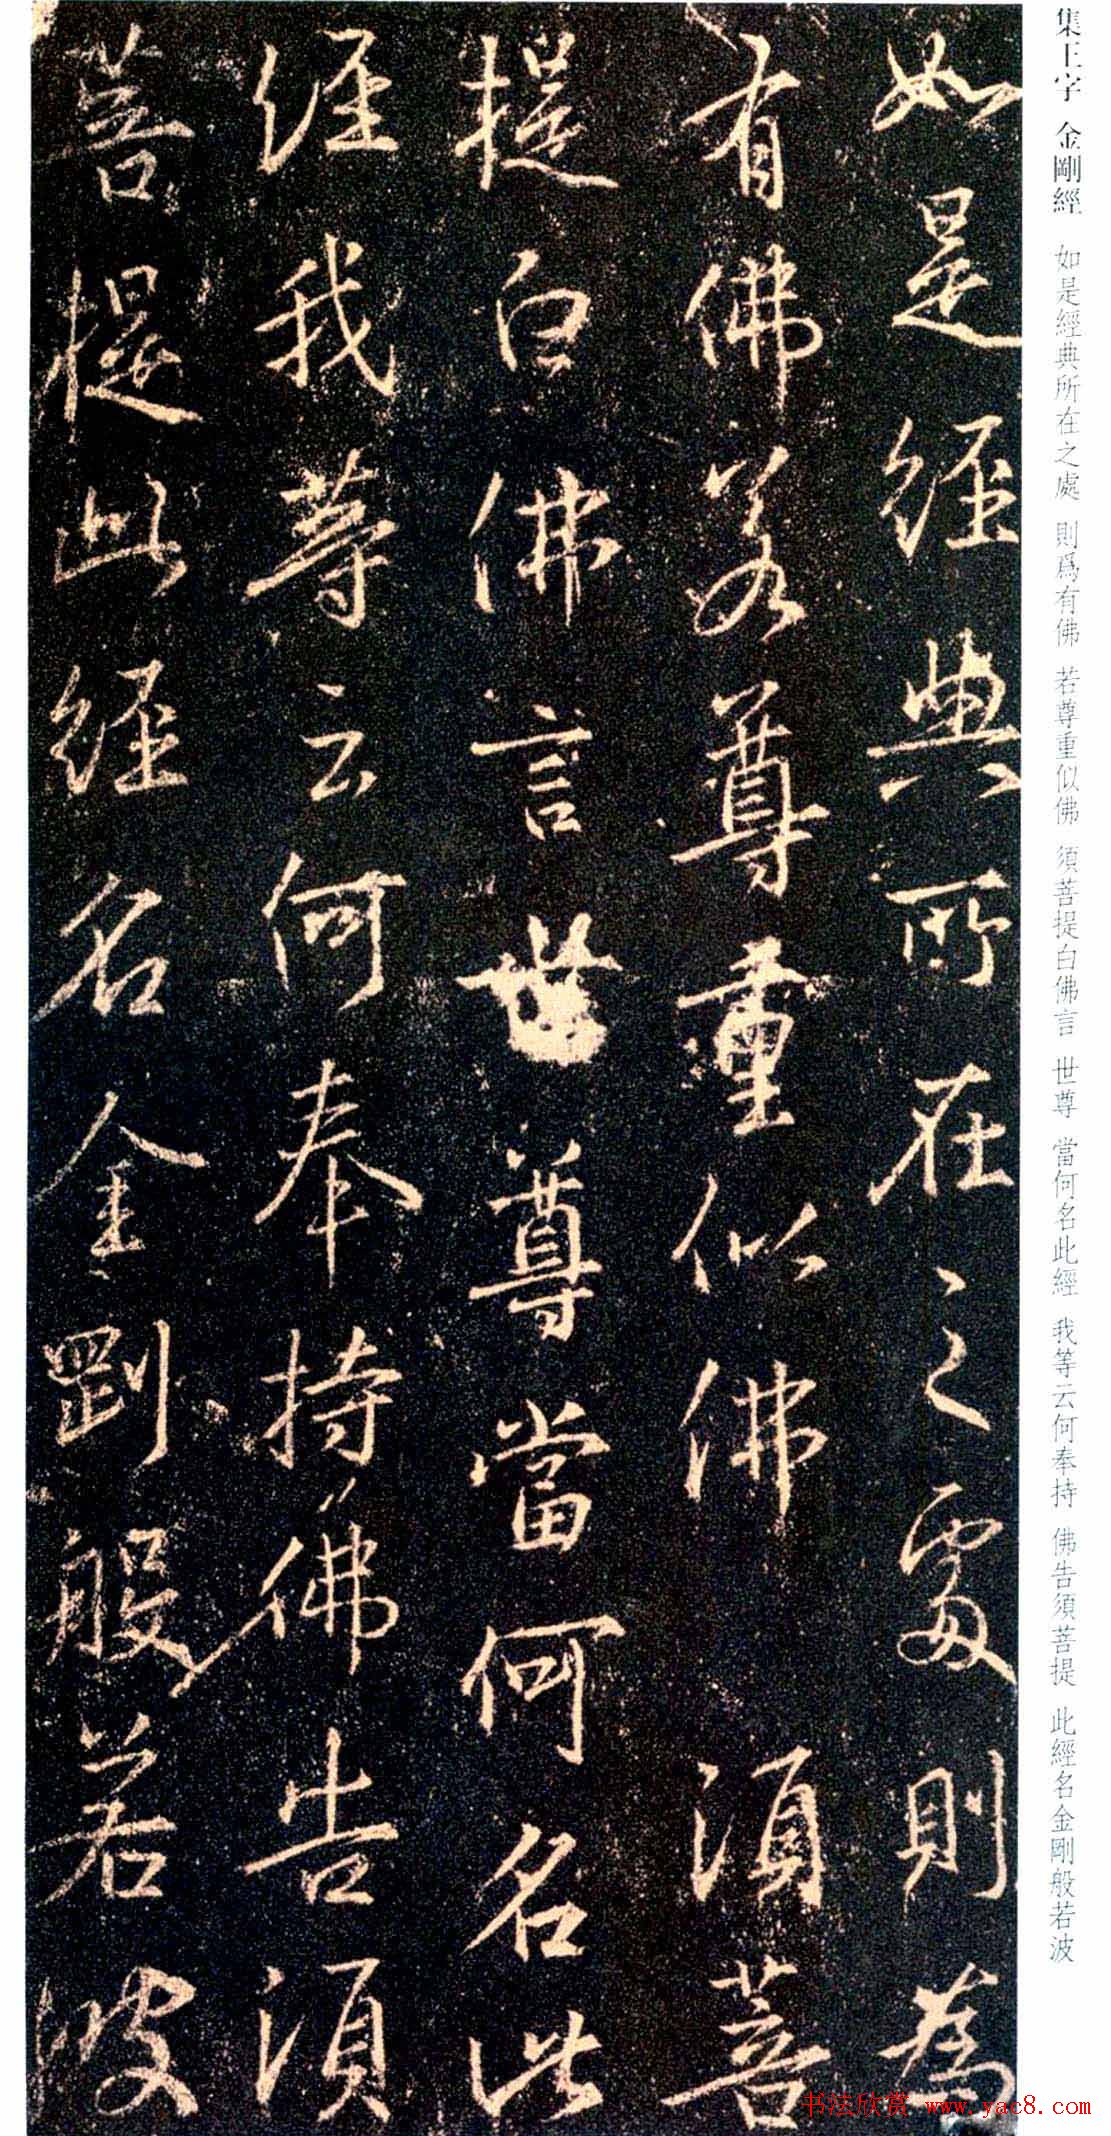 集王字 金剛經 如是經典所在之處 則爲有佛 若尊重似佛 須菩提白佛言 世尊 當何名此經 我等云何奉持 佛告須菩提 此經名金剛般若波
如是經典所在之處則為
有佛若尊重似佛須菩
提白佛言世尊當何名此
經我等云何奉持佛告須
菩提此經名金剛般若波
书法欣赏 www.yac8.com